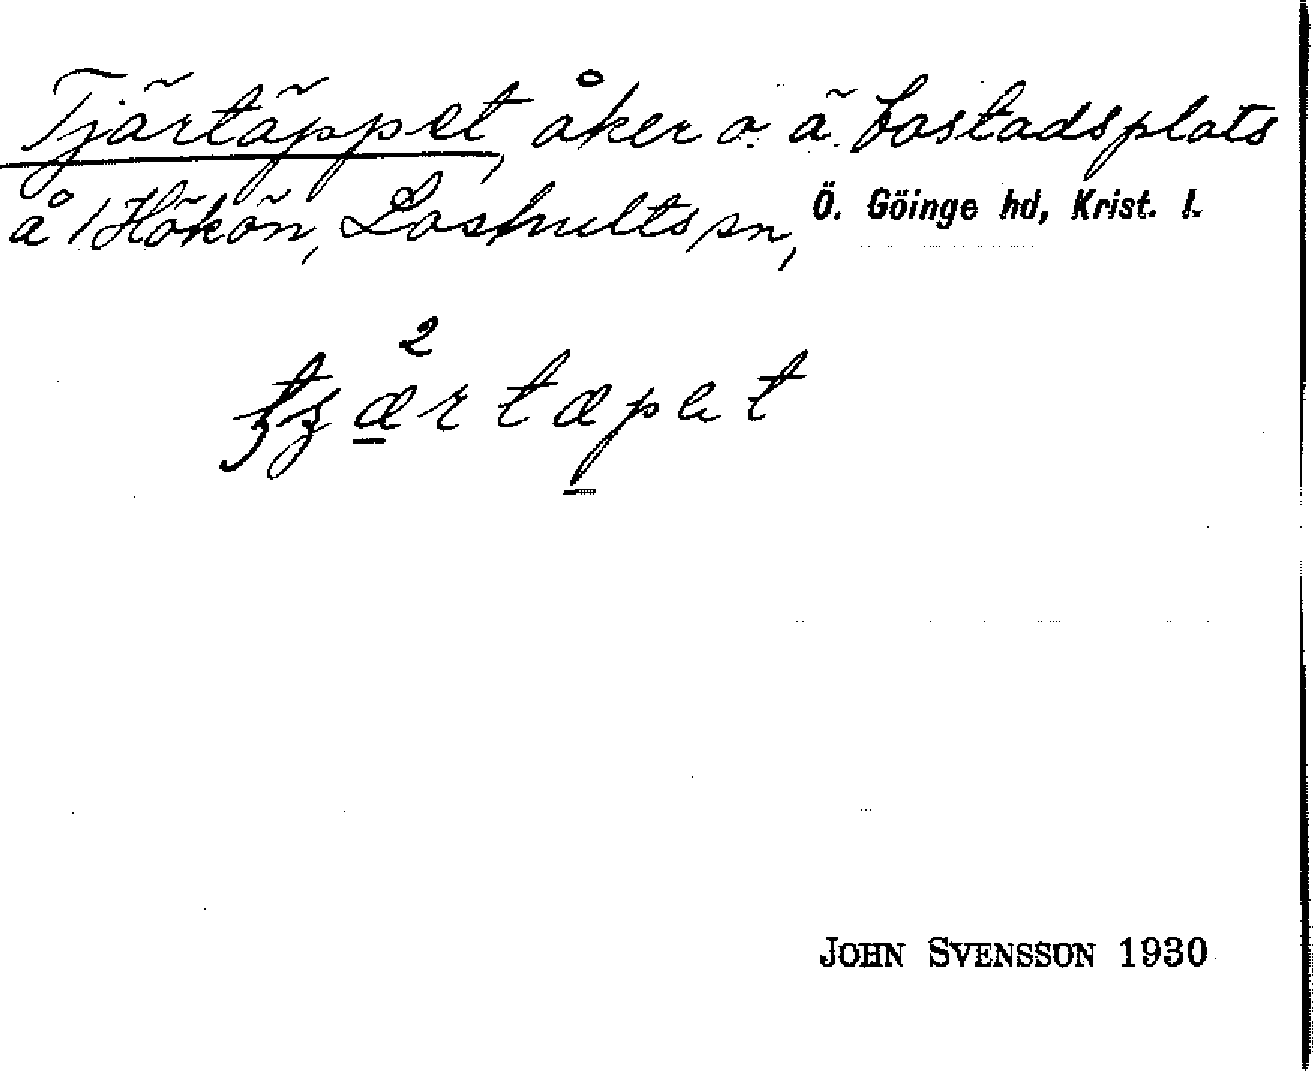 Tjärtäppet, åker o. ä. bostadsplats
å 1 Hökön, Loshults sn, Ö. Göinge hd, Krist. l.
2
JOHN SVENSSON 1930